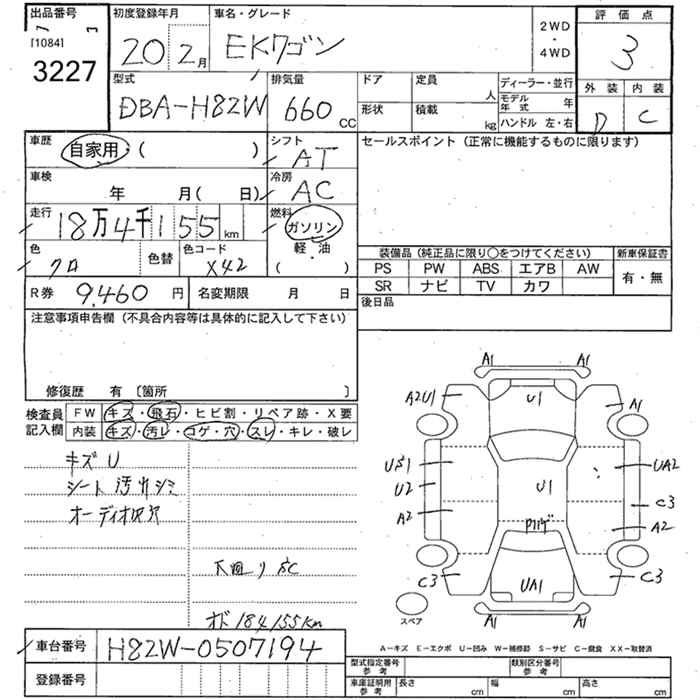 出品番号
[1084]
3227
初度登録年月
20 2月
車名・グレード
EKワゴン
2WD
・
4WD
評価点
3
外装 内装
D C
型式
DBA-H82W
排気量
660 CC
ドア
定員 人
形状
積載 kg
ディーラー・並行
モデル年式 年
ハンドル 左・右
車歴
自家用・( )
シフト
AT
車検
年 月( 日)
冷房
AC
走行
18万4千155 km
燃料
ガソリン
軽・油
( )
色
クロ
色替
色コード
X42
R券 9,460 円
名変期限 月 日
セールスポイント(正常に機能するものに限ります)
装備品(純正品に限り○をつけてください)
新車保証書
PS PW ABS エアB AW
SR ナビ TV カワ
有・無
後日品
注意事項申告欄(不具合内容等は具体的に記入して下さい)
修復歴 有 〔箇所 〕
検査員記入欄
FW キズ・飛石・ヒビ割・リペア跡・X要
内装 キズ・汚レ・コゲ・穴・スレ・キレ・破レ
キズ U
シート 汚レシミ
オーディオ灰穴
下回り SC
オド 184155km
A1 A1
A2U1 U1 A1
US1 UA2
U2 U1 C3
A2 A2
C3 UA1 C3
スペア
A1 A1
A-キズ E-エクボ U-凹み W-補修跡 S-サビ C-腐食 XX-取替済
車台番号
H82W-0507194
登録番号
型式指定番号 参考
類別区分番号 参考
車庫証明用 参考
長さ cm
幅 cm
高さ cm